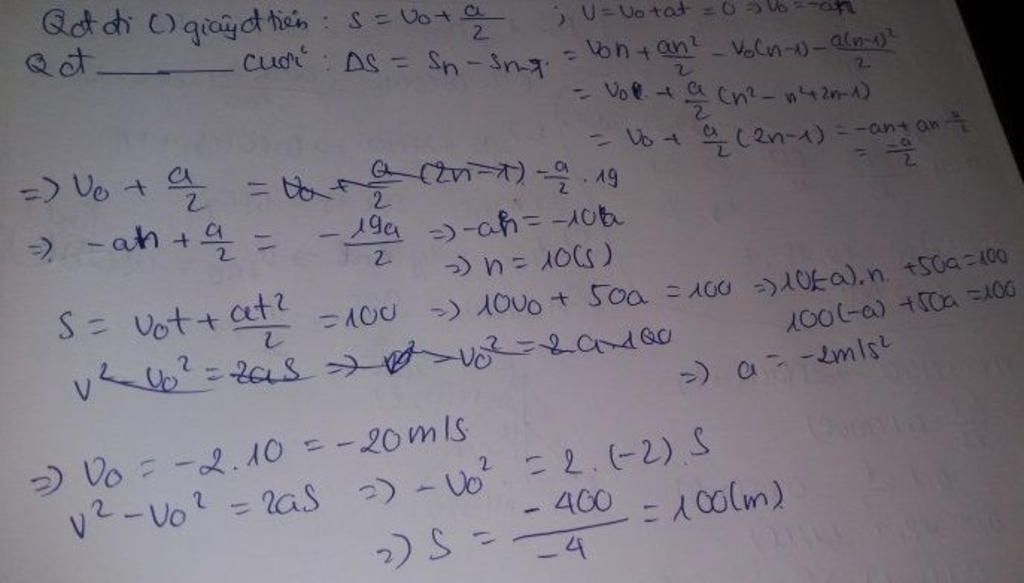 Qđt đi () giây đt tiên : S = v₀ + a/2 ; v = v₀ + at = 0 => v₀ = -an
Qđt ______ cuối : ΔS = Sn - Sn-1 = v₀n + an²/2 - v₀(n-1) - a(n-1)²/2
= v₀ + a/2 (n² - n² + 2n - 1)
= v₀ + a/2 (2n-1) = -an + an - a/2
= -a/2
=> v₀ + a/2 = v₀ + a/2 (2n-1) -a/2 . 19
=> -an + a/2 = -19a/2 => -an = -10a
=> n = 10(s)
S = v₀t + at²/2 = 100 => 10v₀ + 50a = 100 => 10(-a).n + 50a = 100
100(-a) + 50a = 100
v² - v₀² = 2aS => v² - v₀² = 2a.100
=> a = -2m/s²
=> v₀ = -2.10 = -20m/s
v² - v₀² = 2aS => -v₀² = 2.(-2).S
=> S = -400/-4 = 100(m)